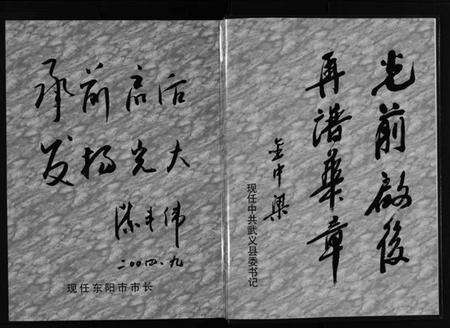 承前启后
发扬光大
陈丰伟
二〇〇四.九
现任东阳市市长
光前啟後
再谱华章
金中梁
现任中共武义县委书记